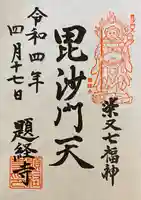 柴又七福神
毘沙門天
令和四年
四月十七日
題経寺